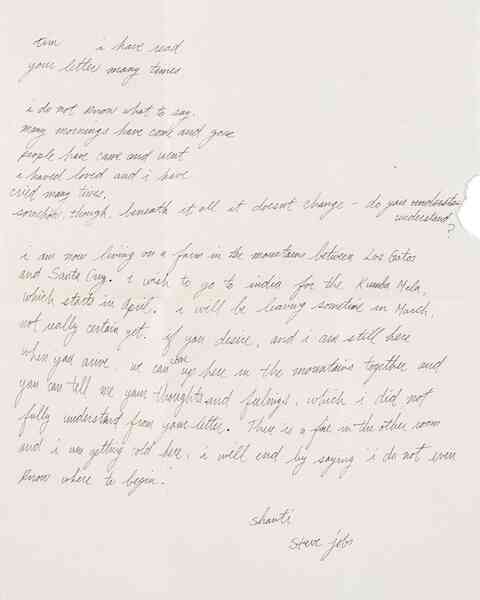 tim i have read
your letter many times
i do not know what to say.
many mornings have come and gone
people have came and went
i haved loved and i have
cried many times.
somehow, though, beneath it all it doesn't change - do you
understand
?
i am now living on a farm in the mountains between Los Gatos
and Santa Cruz. i wish to go to india for the Kumba Mela,
which starts in April. i will be leaving sometime in March,
not really certain yet. if you desire, and i am still here
when you arive, we can up here in the mountains together and
you can tell me your thoughts and feelings, which i did not
fully understand from your letter. There is a fire in the other room
and i am getting cold here. i will end by saying i do not even
know where to begin.
shanti
steve jobs